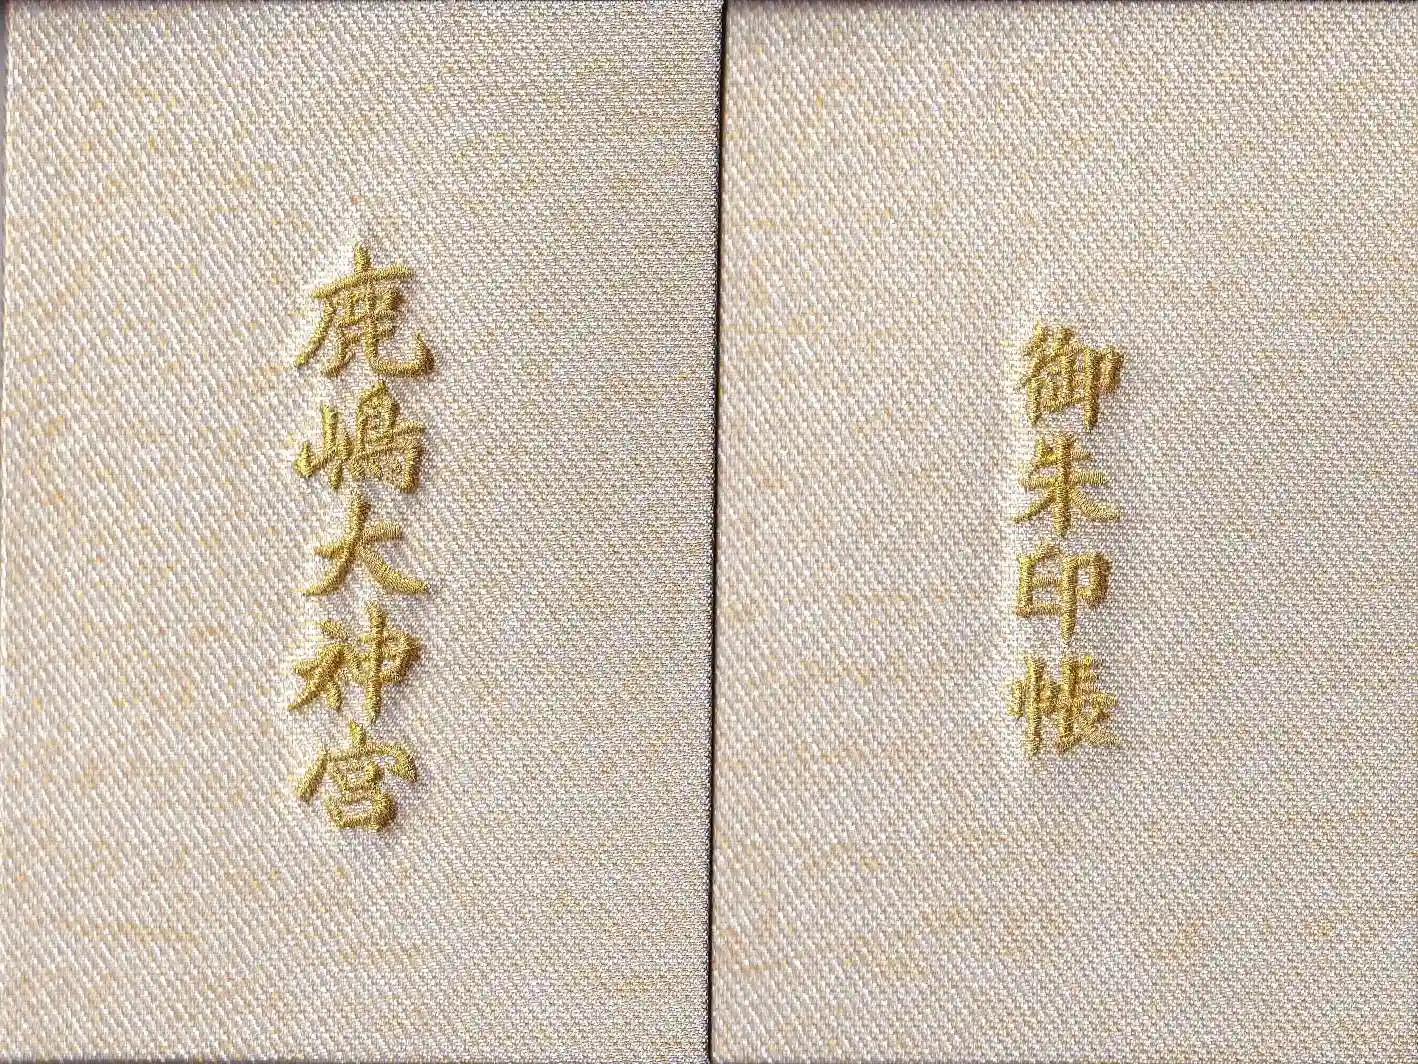 御朱印帳
鹿嶋大神宮